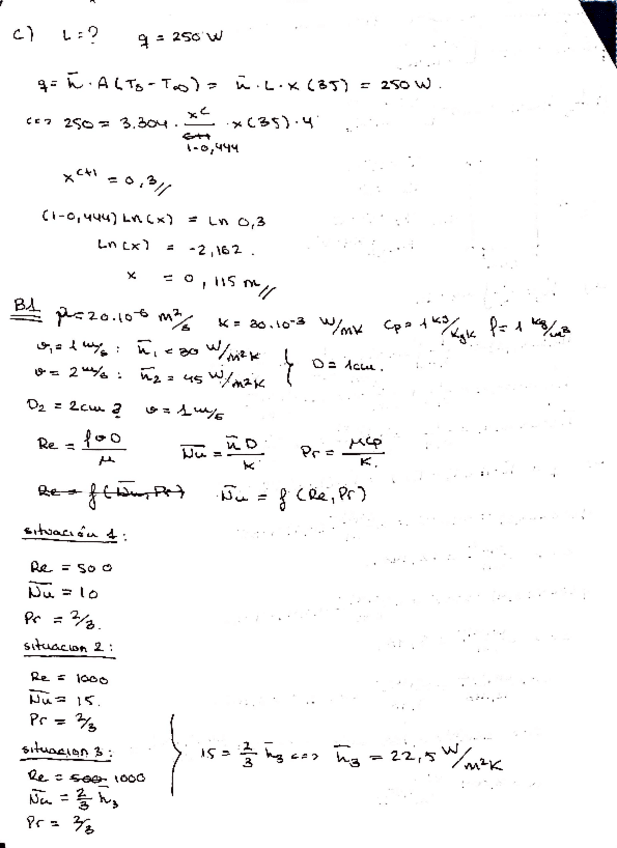 c) L = ? q = 250 W
q = h̄ · A (Ts - T∞) = h̄ · L · x (35) = 250 W.
<=> 250 = 3.304 · x^c / (1-0,444) · x (35) · 4
x^(c+1) = 0,3 //
(1-0,444) Ln(x) = Ln 0,3
Ln(x) = -2,162.
x = 0,115 m //
B1 μ = 20·10^-6 m²/s K = 30·10^-3 W/mK Cp = 1 kJ/KgK ρ = 1 kg/m³
v₁ = 1 m/s : h̄₁ = 30 W/m²K
v = 2 m/s : h̄₂ = 45 W/m²K } D = 1cm.
D₂ = 2cm ? v = 1 m/s
Re = ρvD/μ N̄u = h̄D/K Pr = μCp/K.
Re = f(N̄u, Pr) N̄u = f (Re, Pr)
situación 1:
Re = 500
N̄u = 10
Pr = 2/3.
situacion 2:
Re = 1000
N̄u = 15.
Pr = 2/3
situacion 3:
Re = 500 1000
N̄u = 2/3 h̄₃
Pr = 2/3
} 15 = 2/3 h̄₃ <=> h̄₃ = 22,5 W/m²K